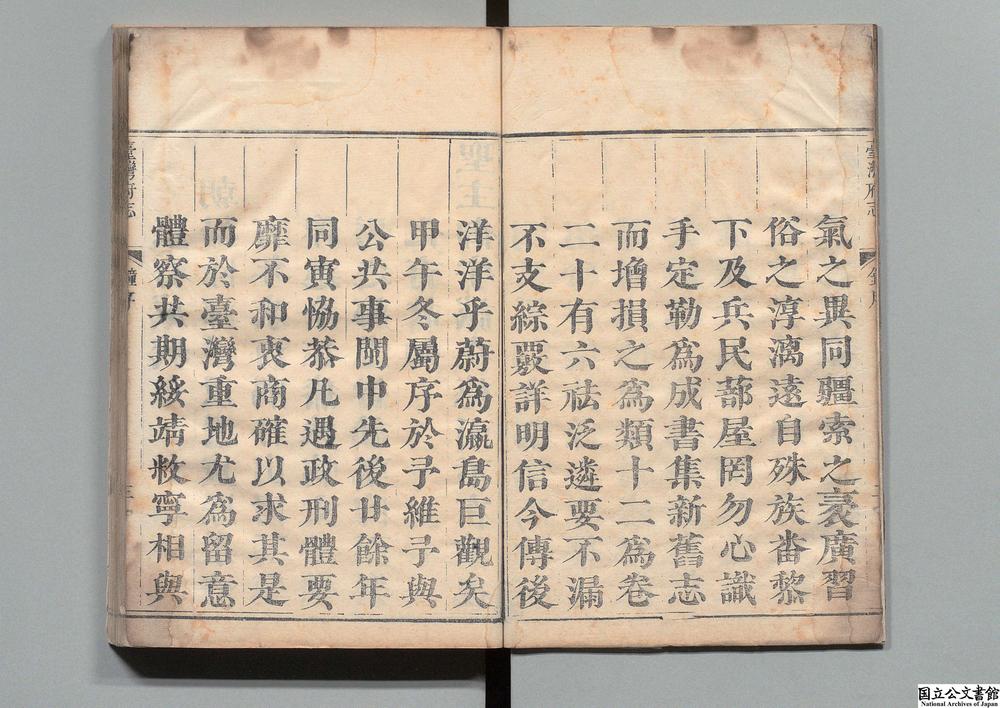 臺灣府志
氣之異同疆索之袤廣習
俗之淳漓遠自殊族畨黎
下及兵民蔀屋罔勿心識
手定勒為成書集新舊志
而增損之為類十二為卷
二十有六祛泛遴要不漏
不支綜覈詳明信今傳後
洋洋乎蔚爲瀛島巨觀矣
甲午冬屬序於予維予與
公共事閩中先後廿餘年
同寅恊恭凡遇政刑體要
靡不和衷商確以求其是
而於臺灣重地尤爲留意
體察共期綏靖敉寧相與
臺灣府志
鐘序
国立公文書館
National Archives of Japan